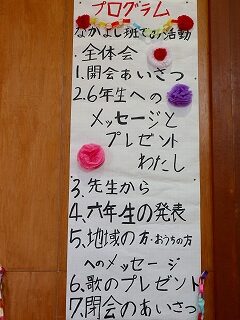 プログラム
なかよし班での活動
全体会
1.開会あいさつ
2.6年生への
メッセージと
プレゼント
わたし
3.先生から
4.六年生の発表
5.地域の方・おうちの方
へのメッセージ
6.歌のプレゼント
7.閉会のあいさつ